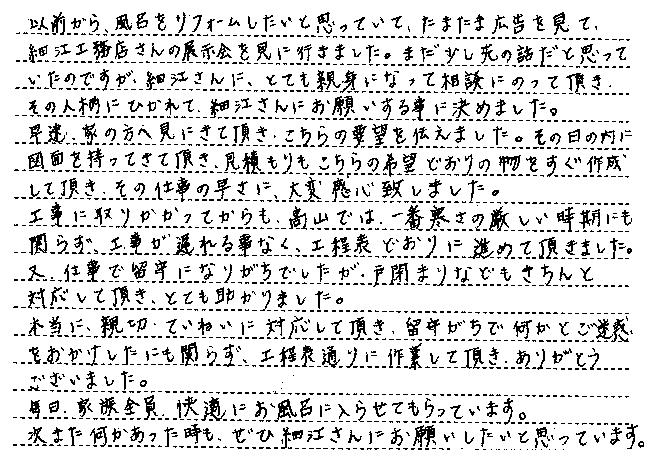 以前から、風呂をリフォームしたいと思っていて、たまたま広告を見て、
細江工務店さんの展示会を見に行きました。まだ少し先の話だと思って
いたのですが、細江さんに、とても親身になって相談にのって頂き、
その人柄にひかれて、細江さんにお願いする事に決めました。
早速、家の方へ見にきて頂き、こちらの要望を伝えました。その日の内に
図面を持ってきて頂き、見積もりもこちらの希望どおりの物をすぐ作成
して頂き、その仕事の早さに、大変感心致しました。
工事に取りかかってからも、高山では、一番寒さの厳しい時期にも
関らず、工事が遅れる事なく、工程表どおりに進めて頂きました。
又、仕事で留守になりがちでしたが、戸閉まりなどもきちんと
対応して頂き、とても助かりました。
本当に、親切、ていねいに対応して頂き、留守がちで何かとご迷惑
をおかけしたにも関らず、工程表通りに作業して頂き、ありがとう
ございました。
毎日、家族全員、快適にお風呂に入らせてもらっています。
次また何かあった時も、ぜひ細江さんにお願いしたいと思っています。